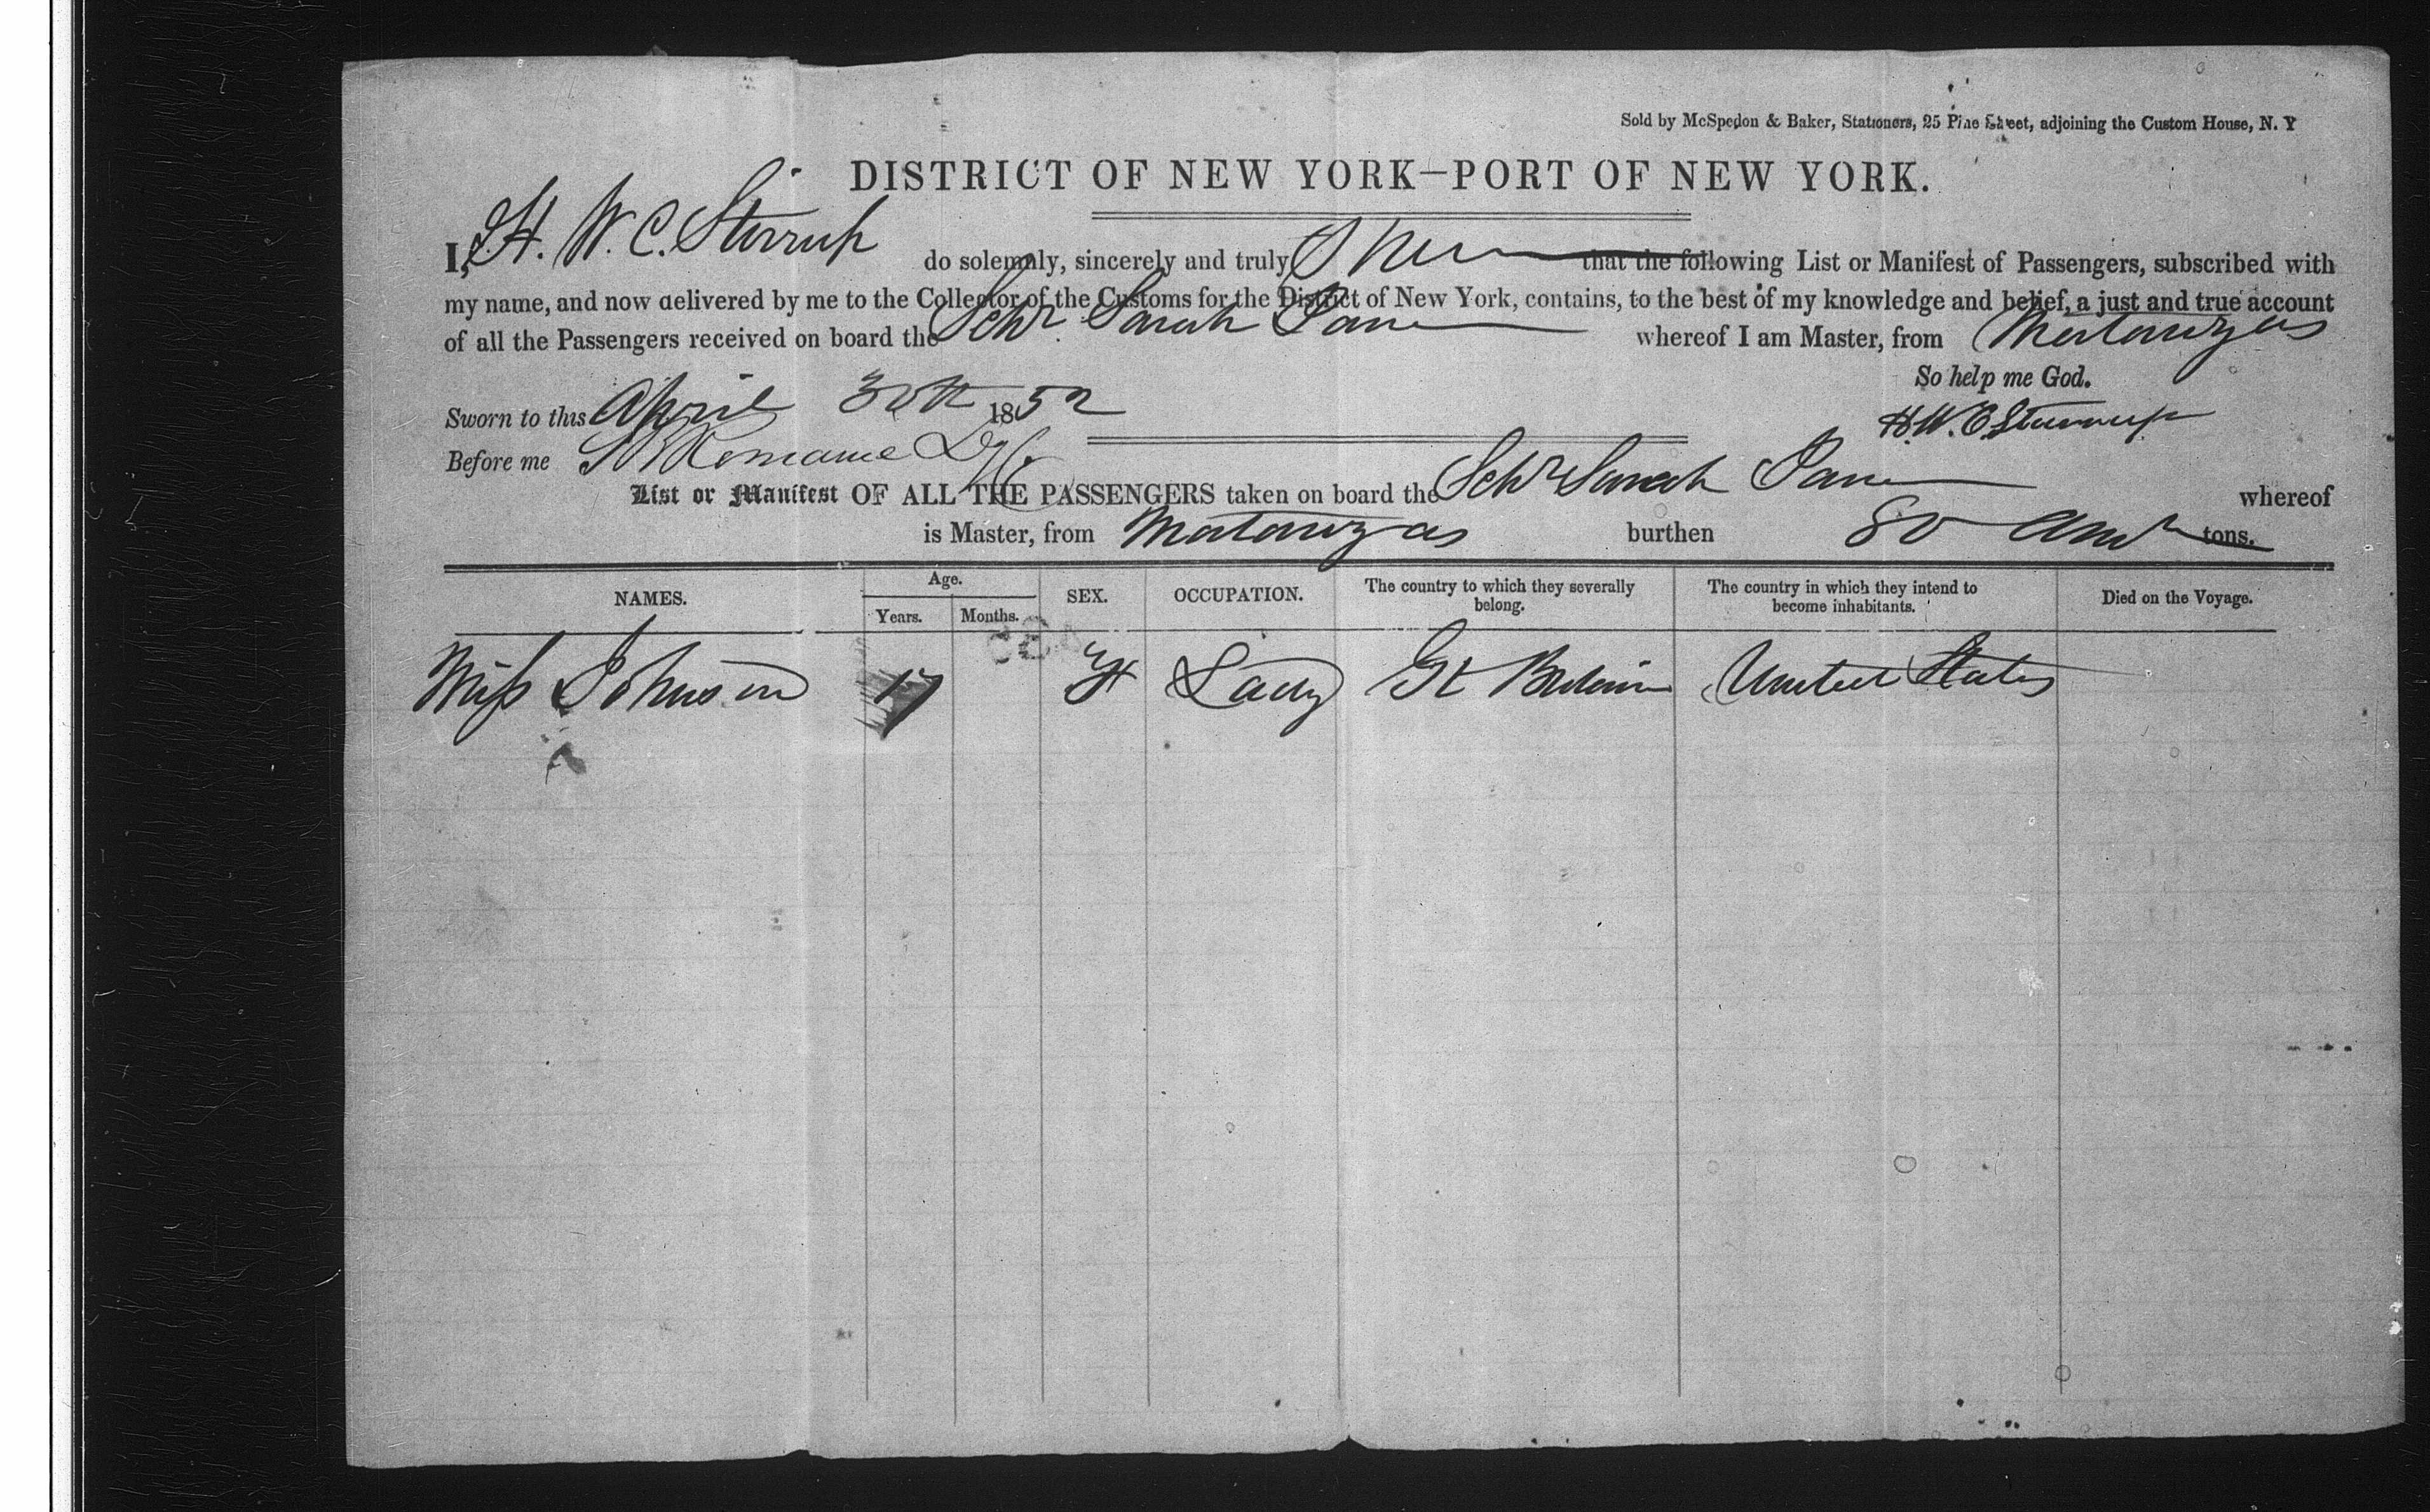 Sold by McSpedon & Baker, Stationers, 25 Pine Street, adjoining the Custom House, N. Y
DISTRICT OF NEW YORK—PORT OF NEW YORK.
I, H. W. C. Stirrup do solemnly, sincerely and truly Swear that the following List or Manifest of Passengers, subscribed with
my name, and now delivered by me to the Collector of the Customs for the District of New York, contains, to the best of my knowledge and belief, a just and true account
of all the Passengers received on board the Schr Sarah Jane whereof I am Master, from Matanzas
So help me God.
Sworn to this April 30th 1852
H. W. C. Stirrup
Before me
List or Manifest OF ALL THE PASSENGERS taken on board the Schr Sarah Jane whereof
is Master, from Matanzas burthen 80 tons.
NAMES. Age. Years. Months. SEX. OCCUPATION. The country to which they severally belong. The country in which they intend to become inhabitants. Died on the Voyage.
Miss Johnson 17 F Lady Gt Britain United States